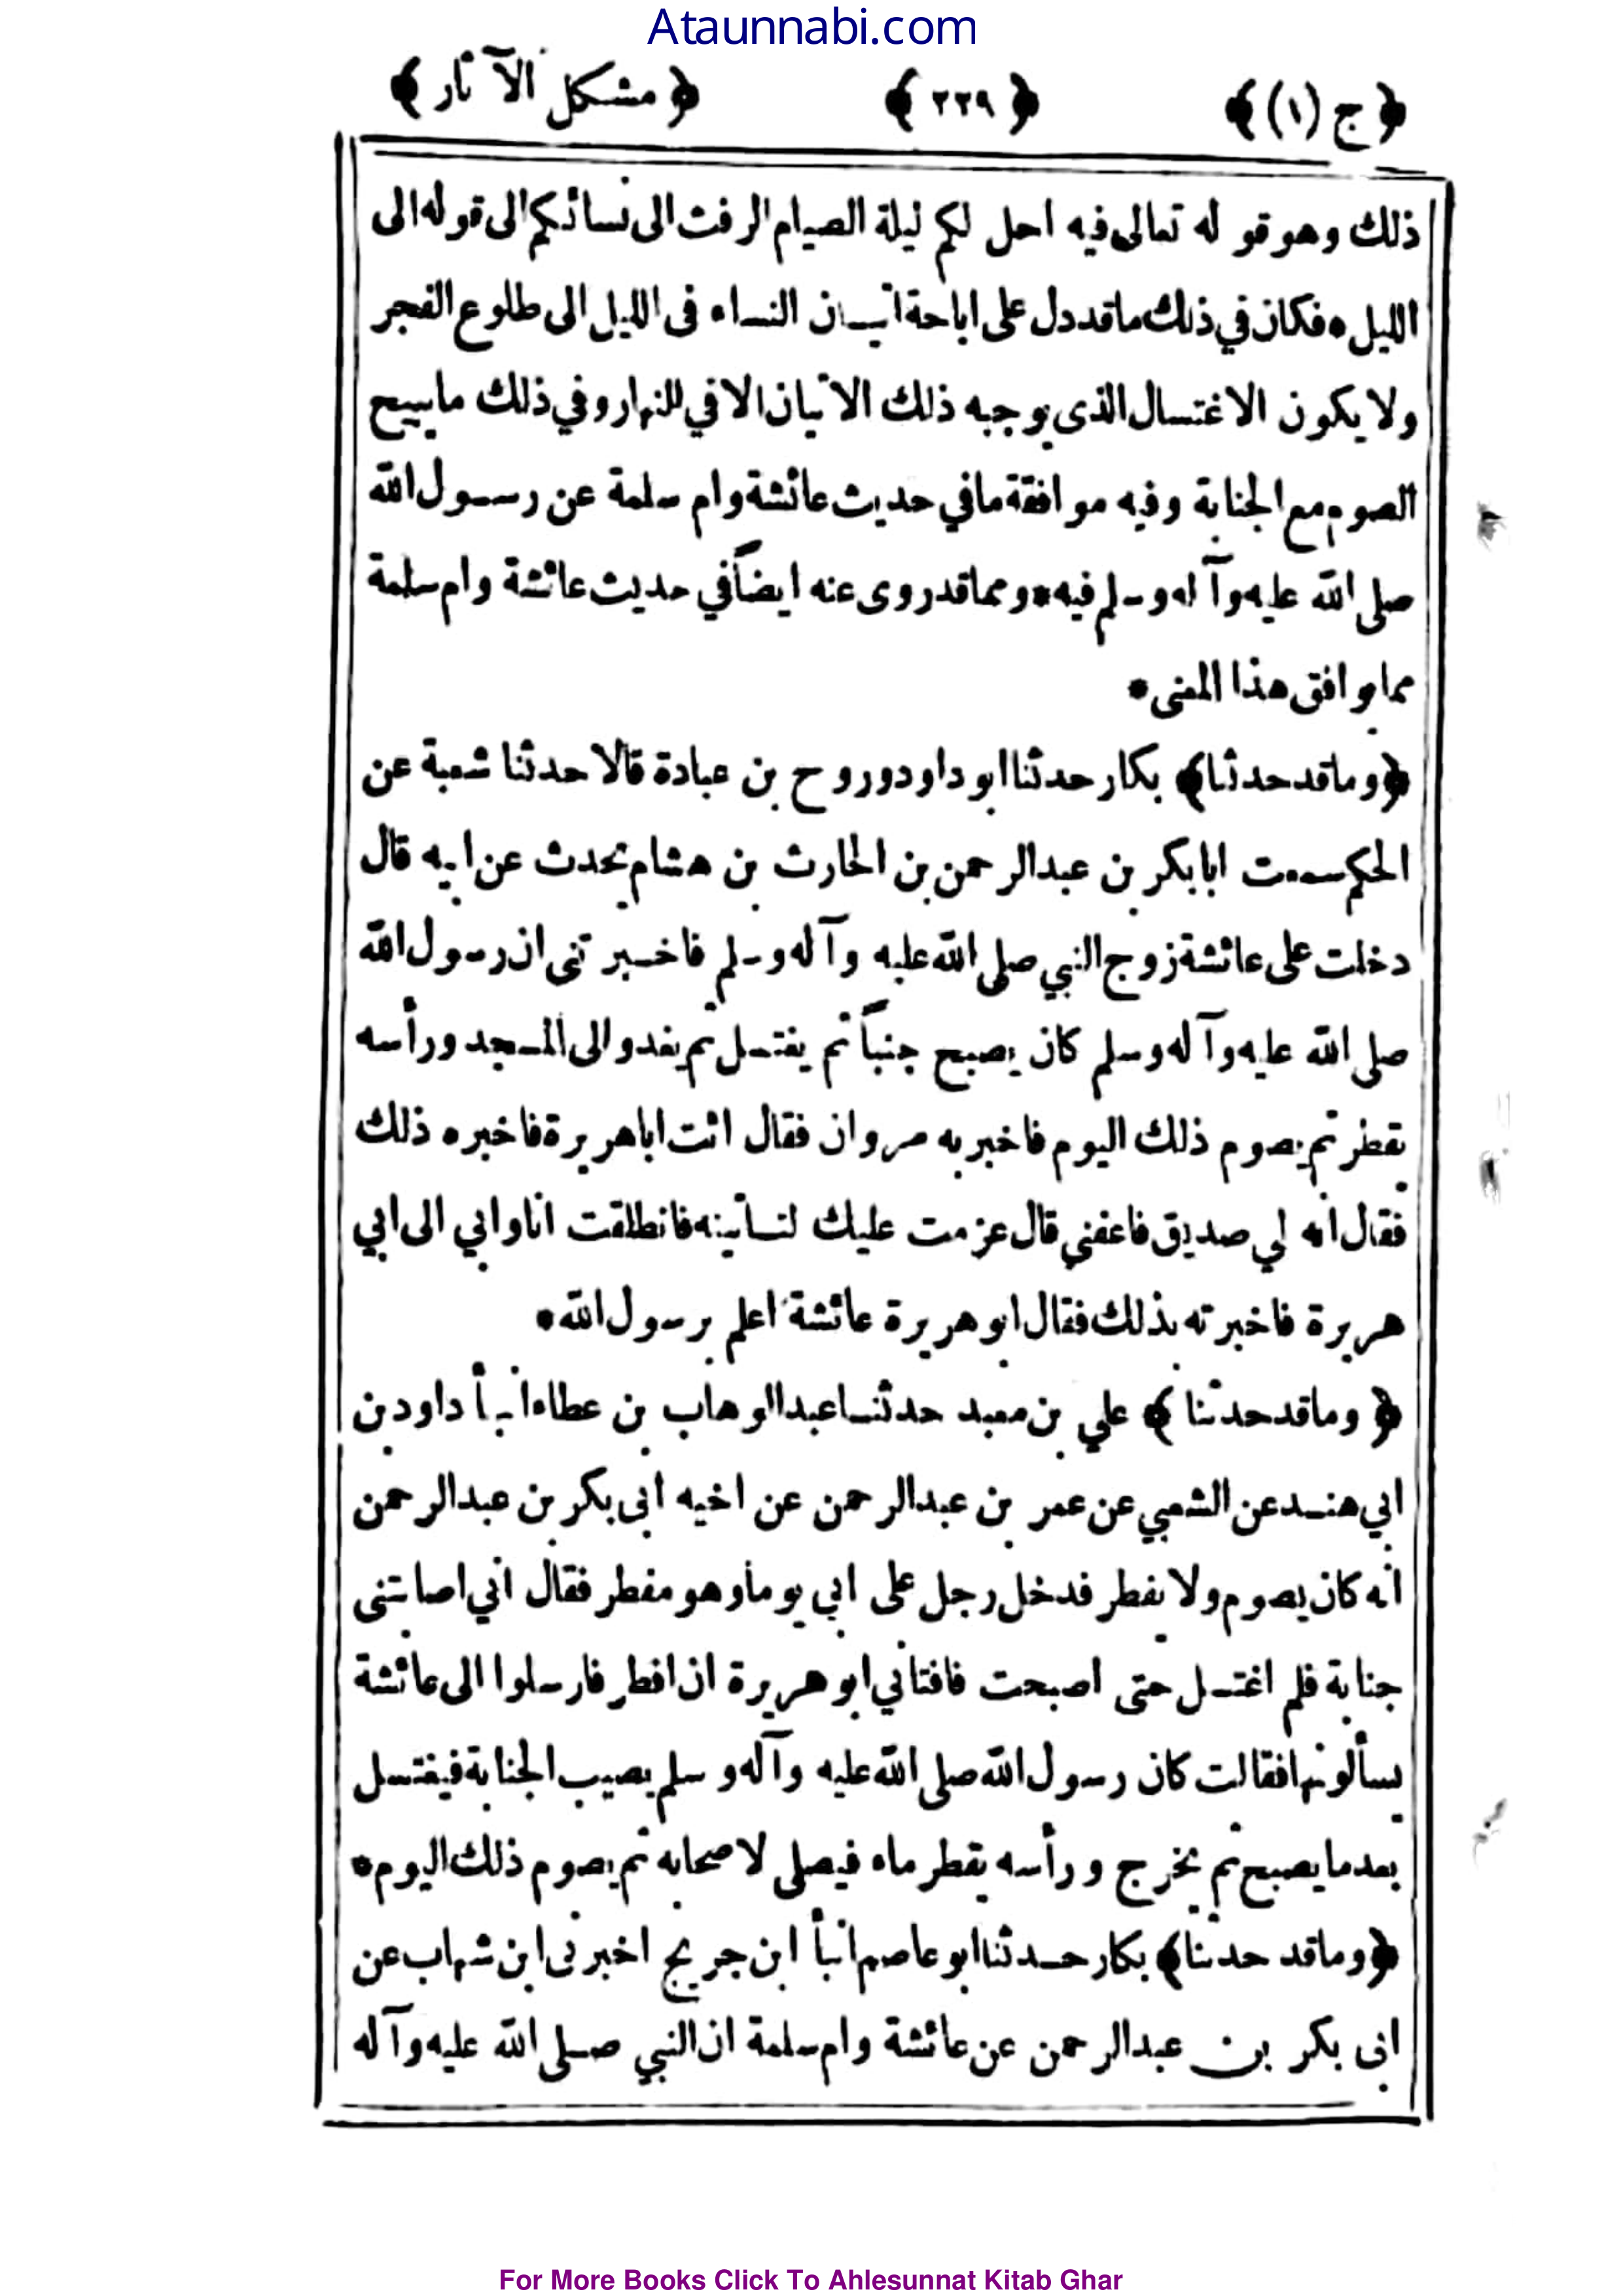 Ataunnabi.com
﴿ ج (١) ﴾ ﴿ ٢٢٩ ﴾ ﴿ مشكل الآثار ﴾
ذلك وهو قوله تعالى فيه احل لكم ليلة الصيام الرفث الى نسائكم الى قوله الى
الليل * فكان في ذلك ما قد دل على اباحة اتيان النساء فى الليل الى طلوع الفجر
ولا يكون الاغتسال الذى يوجبه ذلك الاتيان الا في النهار وفي ذلك ما يبيح
الصوم مع الجنابة وفيه موافقة ما في حديث عائشة وام سلمة عن رسول الله
صلى الله عليه وآله وسلم فيه * ومما قد روى عنه ايضاً في حديث عائشة وام سلمة
مما يوافق هذا المعنى *
﴿ وما قد حدثنا ﴾ بكار حدثنا ابو داود وروح بن عبادة قالا حدثنا شعبة عن
الحكم سمعت ابا بكر بن عبد الرحمن بن الحارث بن هشام يحدث عن ابيه قال
دخلت على عائشة زوج النبي صلى الله عليه وآله وسلم فاخبرتنى ان رسول الله
صلى الله عليه وآله وسلم كان يصبح جنباً ثم يغتسل ثم يغدو الى المسجد ورأسه
تقطر ثم يصوم ذلك اليوم فاخبر به مروان فقال ائت ابا هريرة فاخبره ذلك
فقال انه لي صديق فاعفني قال عزمت عليك لتأتينه فانطلقت انا وابي الى ابي
هريرة فاخبرته بذلك فقال ابو هريرة عائشة اعلم برسول الله *
﴿ وما قد حدثنا ﴾ علي بن معبد حدثنا عبد الوهاب بن عطاء انبأ داود بن
ابي هند عن الشعبي عن عمر بن عبد الرحمن عن اخيه ابى بكر بن عبد الرحمن
انه كان يصوم ولا يفطر فدخل رجل على ابي يوماً وهو مفطر فقال اني اصابتنى
جنابة فلم اغتسل حتى اصبحت فافتاني ابو هريرة ان افطر فارسلوا الى عائشة
يسألونها فقالت كان رسول الله صلى الله عليه وآله وسلم يصيب الجنابة فيغتسل
بعد ما يصبح ثم يخرج ورأسه يقطر ماء فيصلى لاصحابه ثم يصوم ذلك اليوم *
﴿ وما قد حدثنا ﴾ بكار حدثنا ابو عاصم انبأ ابن جريج اخبرنى ابن شهاب عن
ابى بكر بن عبد الرحمن عن عائشة وام سلمة ان النبي صلى الله عليه وآله
For More Books Click To Ahlesunnat Kitab Ghar